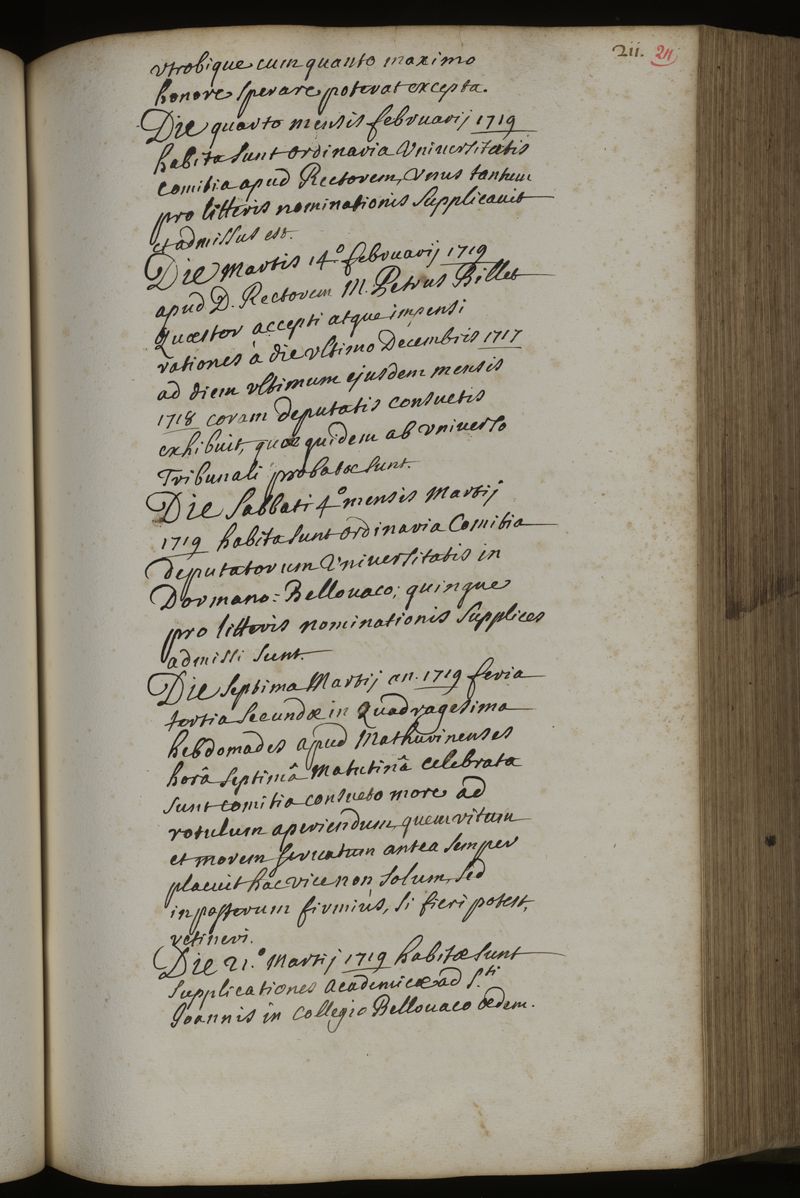 211. 211
vtrobique cum quanto maximo
honore sperare poterat excepta.
Die quarto mensis februarij 1719
habita sunt ordinaria Vniversitatis
comitia apud Rectorem, Vnus tantum
pro litteris nominationis supplicavit
et admissus est.
Die Martis 14.° februarij 1719
apud D. Rectorem M. Petrus Billet
Quæstor accepti atque impensi
rationes à die vltimo Decembris 1717
ad diem vltimum ejusdem mensis
1718 coram deputatis consuetis
exhibuit, quæ quidem ab vniverso
Tribunali probatæ sunt.
Die Sabbati 4.° mensis Martij
1719 habita sunt ordinaria Comitia
deputatorum Vniversitatis in
Dormano-Bellouaco; quinque
pro litteris nominationis supplices
admissi sunt.
Die septima Martij an. 1719 feria
tertia secundæ in Quadragesima
hebdomades apud Mathurinenses
horâ septimâ matutinâ celebrata
sunt comitia consueto more ad
rotulum aperiendum, quem ritum
et morem servatum antea semper
placuit hac vice non solum, sed
in posterum firmiùs, si fieri potest,
retineri.
Die 21.° Martij 1719 habitæ sunt
supplicationes academicæ ad S.ti
Joannis in collegio Bellouaco ædem.